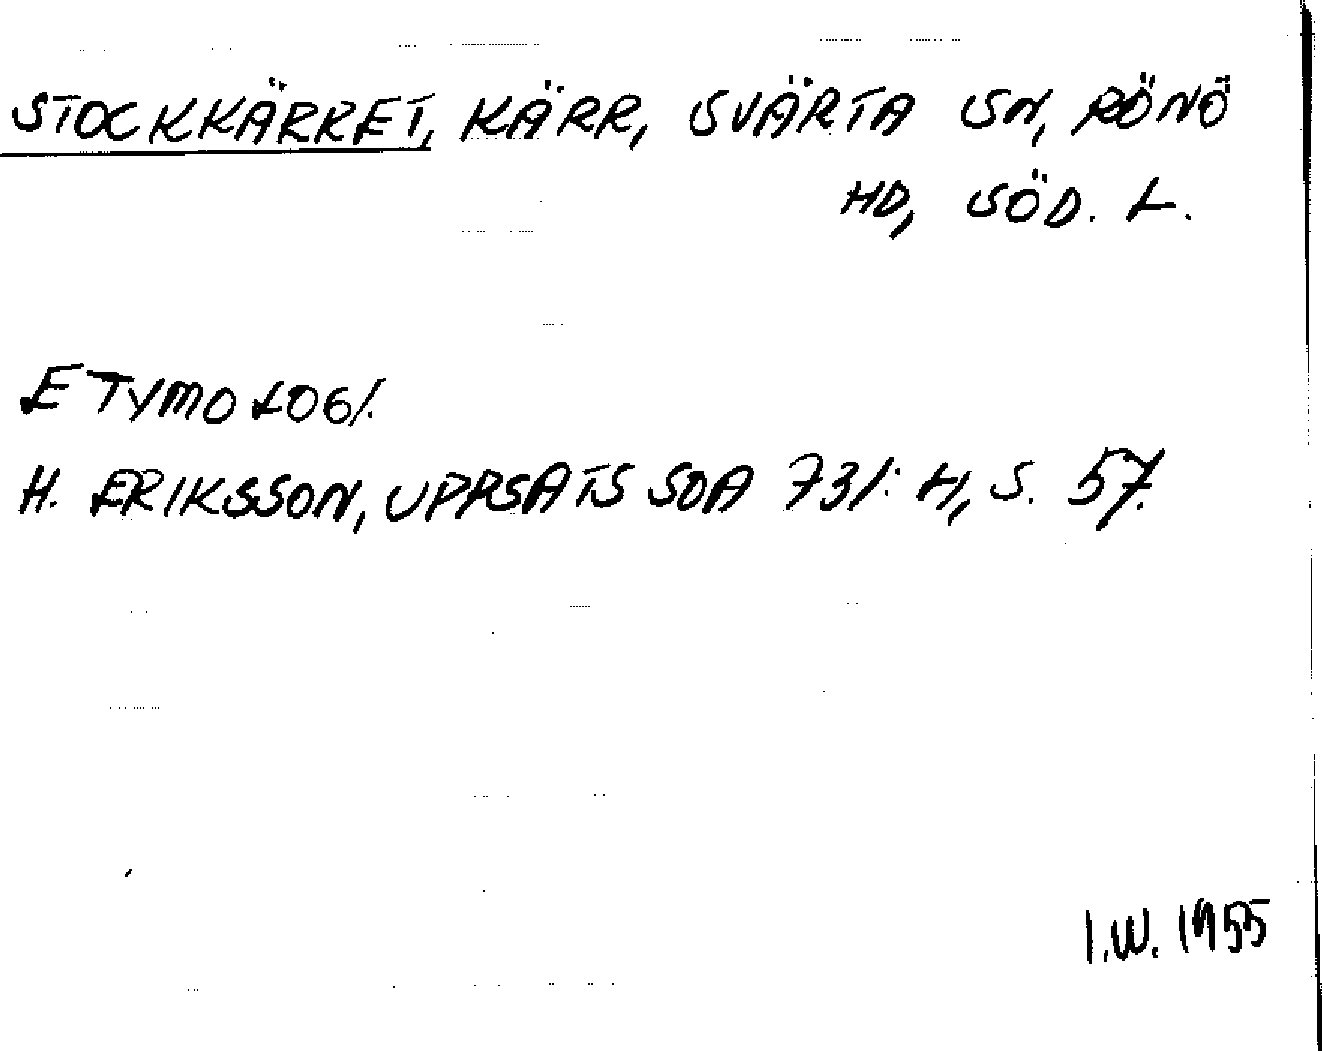 STOCKKÄRRET, KÄRR, SVÄRTA SN, RÖNÖ
HD, SÖD. L.
ETYMOLOGI.
H. ERIKSSON, UPPSATS SOA 731: H, S. 57.
I.W. 1955